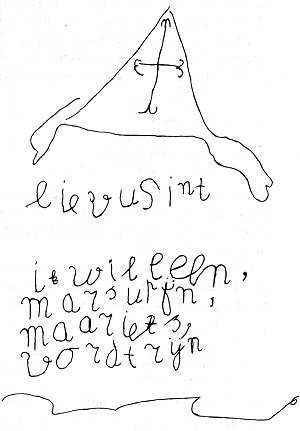 lievuSint
ik wil eeen,
marsupijn,
maar iets,
vordtrijn